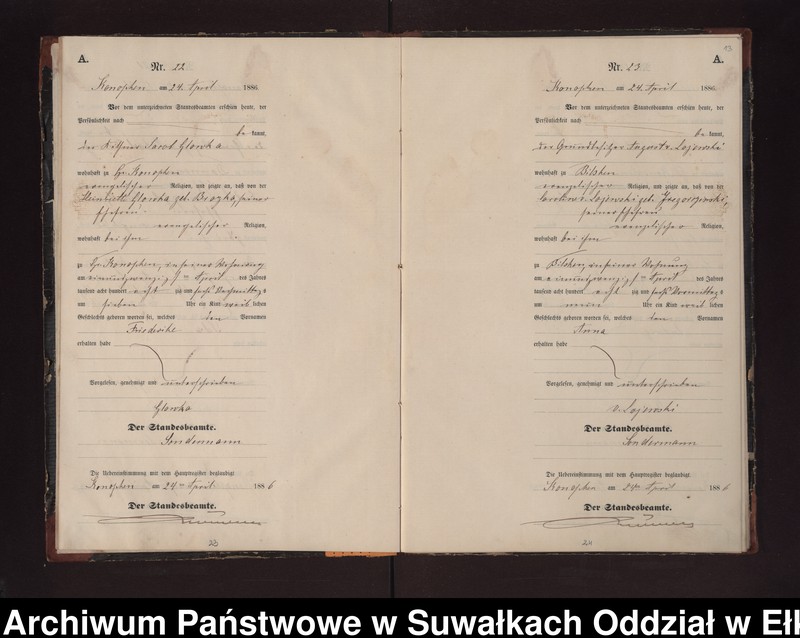 A.
Nr. 22
Konopken am 24. April 1886.
Vor dem unterzeichneten Standesbeamten erschien heute, der
Persönlichkeit nach
be kannt,
der Jacob Glowka
wohnhaft zu Gr. Konopken
evangelischer Religion, und zeigte an, daß von der
Glowka geb. seiner
Ehefrau
evangelischer Religion,
wohnhaft bei ihm
zu Gr. Konopken, in seiner Wohnung
am einundzwanzigsten April des Jahres
tausend acht hundert acht zig und sechs Vormittags
um sieben Uhr ein Kind weib lichen
Geschlechts geboren worden sei, welches den Vornamen
Friederike
erhalten habe
Vorgelesen, genehmigt und unterschrieben
Glowka
Der Standesbeamte.
Sondermann
Die Uebereinstimmung mit dem Hauptregister beglaubigt
Konopken am 24ten April 1886
Der Standesbeamte.
23
13
A.
Nr. 23
Konopken am 24. April 1886.
Vor dem unterzeichneten Standesbeamten erschien heute, der
Persönlichkeit nach
be kannt,
der Grundbesitzer v. Lojewski
wohnhaft zu Bilsken
evangelischer Religion, und zeigte an, daß von der
v. Lojewski geb.
seiner Ehefrau
evangelischer Religion,
wohnhaft bei ihm
zu Bilsken, in seiner Wohnung
am einundzwanzigsten April des Jahres
tausend acht hundert acht zig und sechs Vormittags
um neun Uhr ein Kind weib lichen
Geschlechts geboren worden sei, welches den Vornamen
Anna
erhalten habe
Vorgelesen, genehmigt und unterschrieben
v. Lojewski
Der Standesbeamte.
Sondermann
Die Uebereinstimmung mit dem Hauptregister beglaubigt
Konopken am 24ten April 1886
Der Standesbeamte.
24
Archiwum Państwowe w Suwałkach Oddział w Ełk